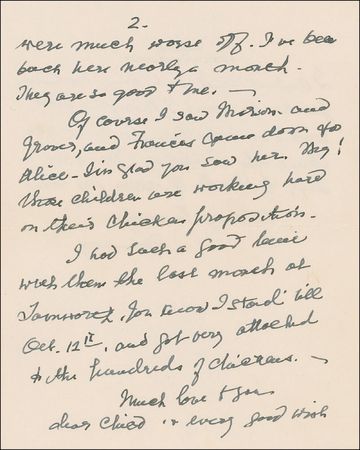 2.
were much worse off. I've been
back here nearly a month.
They are so good to me. —
Of course I saw Marion and
Grover, and Frances came down for
Alice - I'm glad you saw her. My!
those children are working hard
on their chicken proposition.
I had such a good time
with them the last month at
Tamworth, you know I stayed till
Oct. 12th, and got very attached
to the hundreds of chickens. —
Much love to you
dear child & every good wish